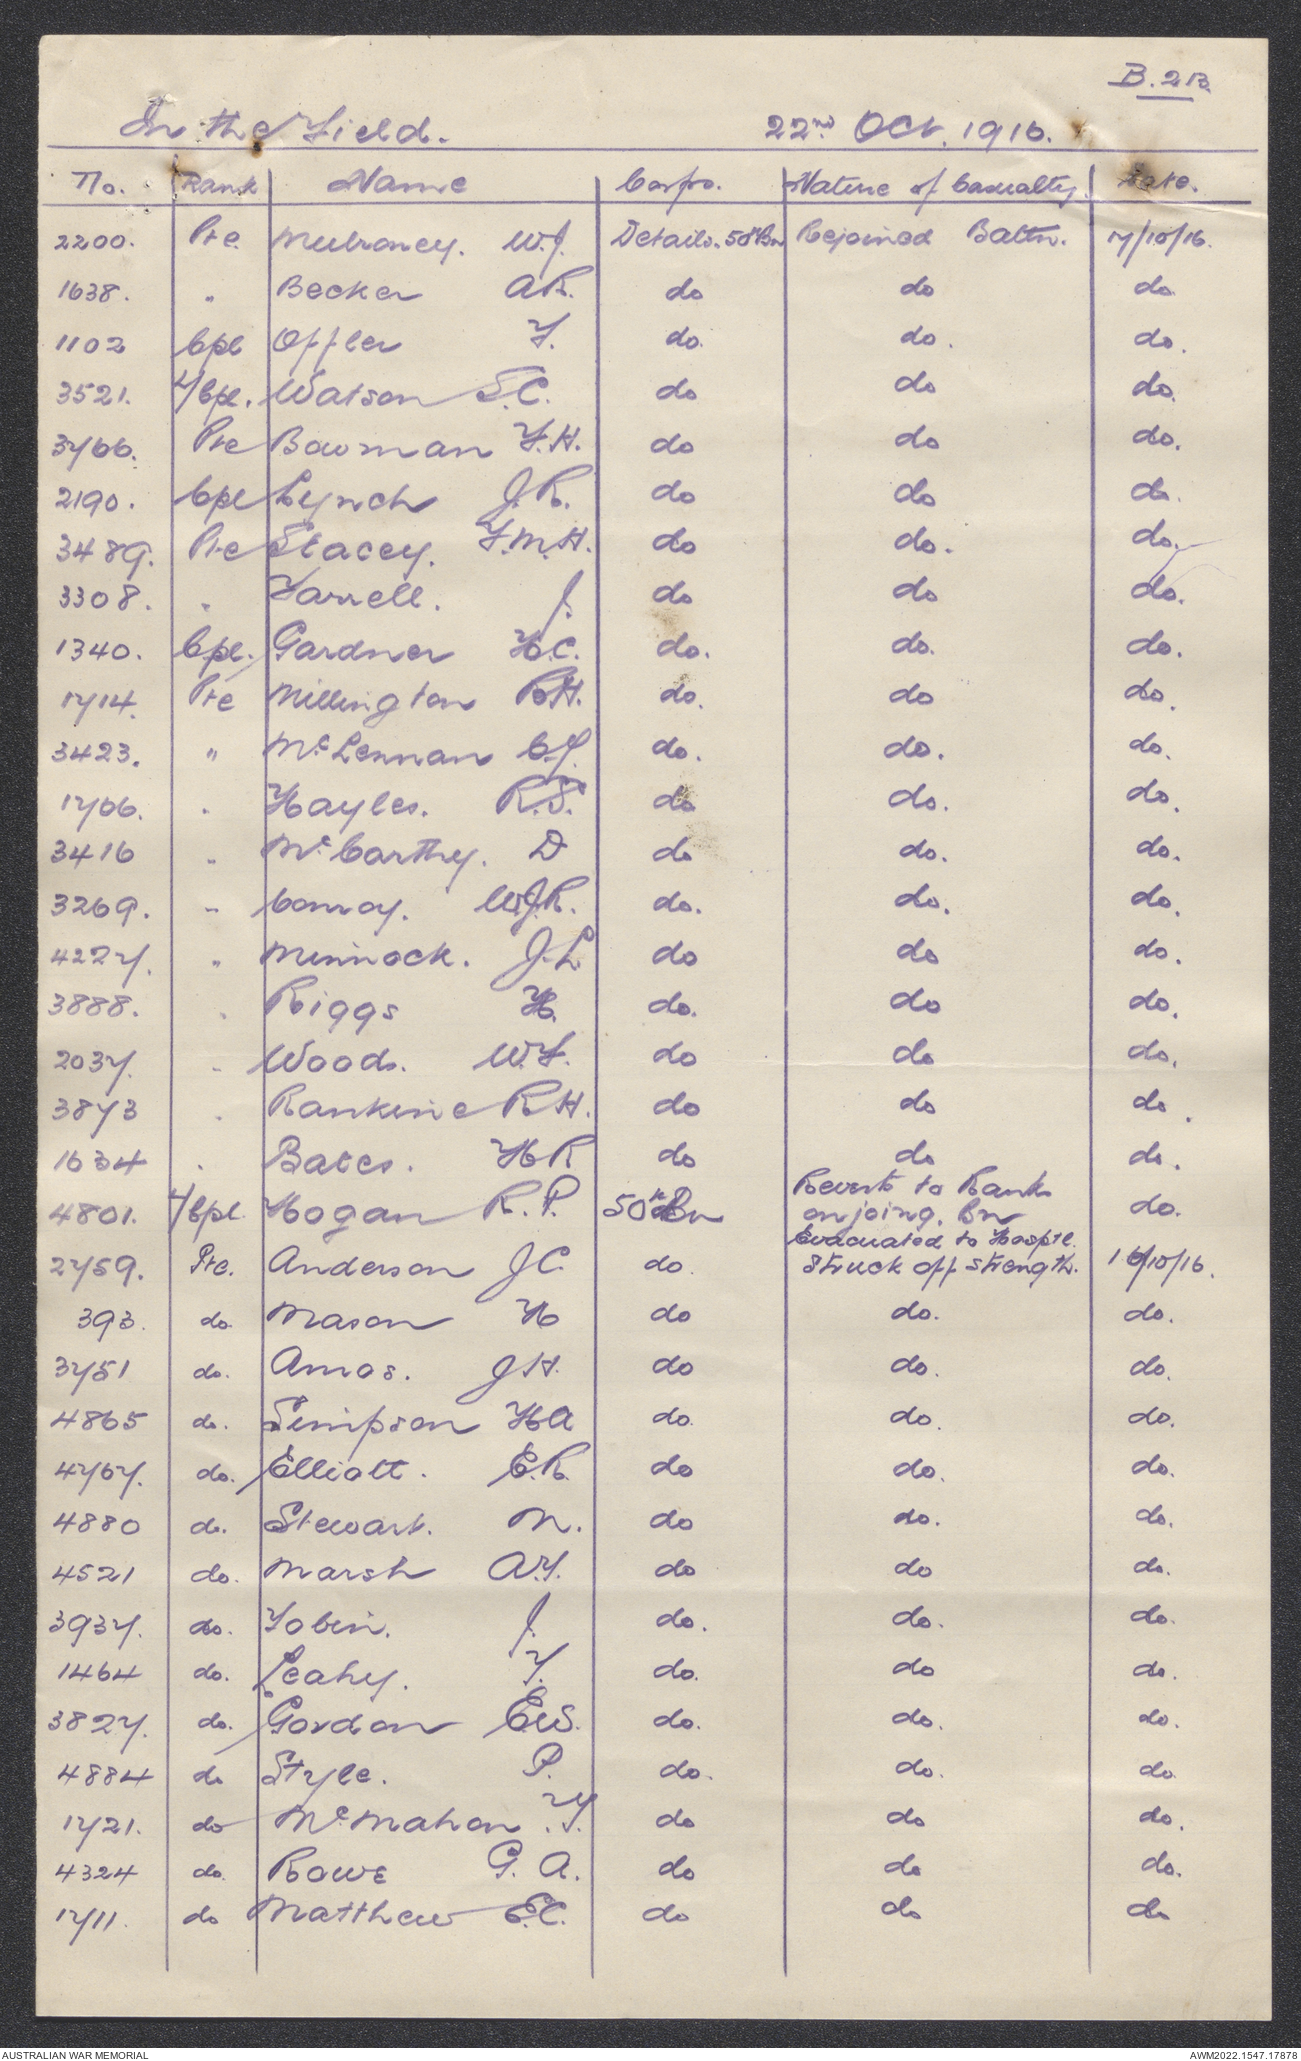 B.213.
In the Field. 22nd Oct. 1916.
No. Rank Name Corps. Nature of Casualty. Date.
2200. Pte Mulroney. W.J. Details. 50th Bn Rejoined Battn. 17/10/16.
1638. " Becker A.R. do do do
1102 Cpl Offler F. do. do. do.
3521. L/Cpl. Watson S.C. do do do.
3766. Pte Bowman F.H. do do do.
2190. Cpl Lynch J.R. do do do.
3489. Pte Stacey. F.M.H. do do. do.
3308. " Farrell. J. do do do.
1340. Cpl. Gardner H.C. do. do. do.
1714. Pte Millington R.H. do. do do.
3423. " McLennan C.J. do. do. do.
1706. " Hayles. R.S. do do. do.
3416 " McCarthy. D do do. do.
3269. " Conroy. W.J.R. do. do. do.
4227. " Minnock. J.L do do do.
3888. " Riggs H. do. do do.
2037. " Woods. W.F. do do do.
3873 " Rankine R.H. do do do.
1634 " Bates. H R do do do.
4801. L/Cpl Hogan R.P. 50th Bn Reverts to Ranks
on joing. Bn do.
2759. Pte. Anderson J C. do. Evacuated to Hosptl.
Struck off strength. 16/10/16.
393. do. Mason H do do. do.
3751 do. Amos. J H. do do. do.
4865 do. Simpson H A do. do. do.
4767. do. Elliott. E.R. do do. do.
4880 do. Stewart. M. do do. do.
4521 do. Marsh A.F. do do do.
3937. do. Tobin. J. do. do. do.
1464 do. Leahy. T. do. do do.
3827. do. Gordon E.W.S. do. do. do.
4884 do Style. P. do. do. do
1721. do McMahon .F. do do do.
4324 do. Rowe G. A. do do do.
1711. do Matthew E.C. do do do
AUSTRALIAN WAR MEMORIAL AWM2022.1547.17878